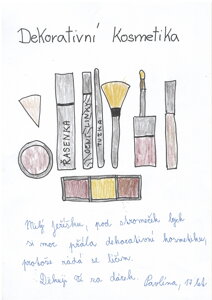 Dekorativní Kosmetika
ŘASENKA
OČNÍ LINKY
TUŽKA
Milý Ježíšku, pod stromeček bych
si moc přála dekorativní kosmetiku,
protože ráda se líčím.
Děkuji Ti za dárek. Pavlína, 17 let